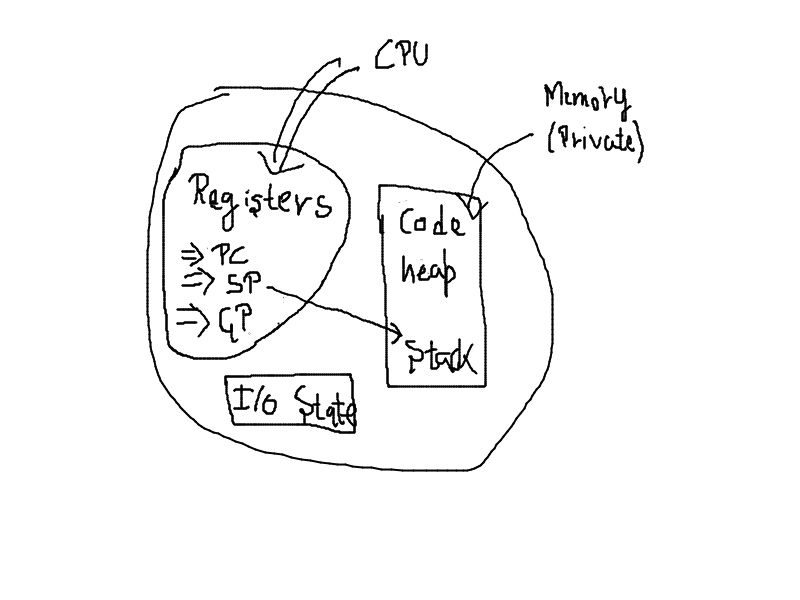 CPU
Memory
(Private)
Registers
⇒ PC
⇒ SP
⇒ GP
Code
heap
Stack
I/O State